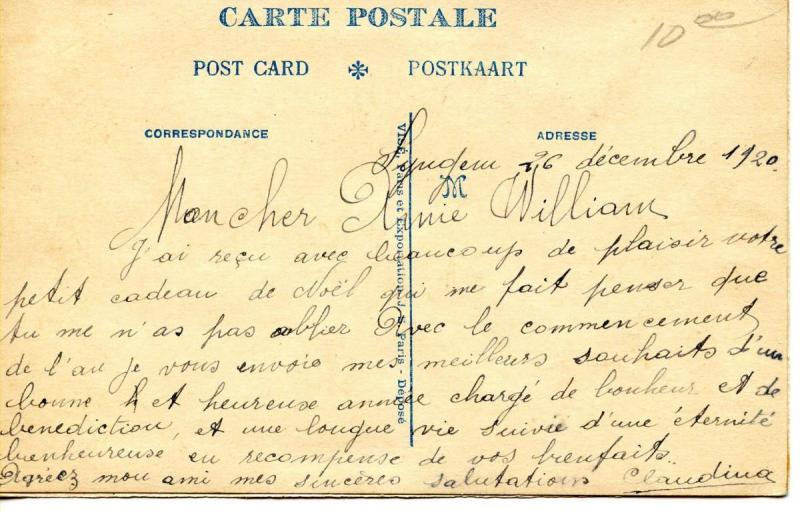 CARTE POSTALE
10 00
POST CARD * POSTKAART
CORRESPONDANCE
ADRESSE
26 décembre 1920
M
Mon cher William
J'ai reçu avec beaucoup de plaisir votre
petit cadeau de Noël qui me fait penser que
tu me n'as pas oblier Avec le commencement
de l'an je vous envoie mes meilleurs souhaits d'un
bonne et heureuse année chargé de bonheur et de
benediction, et une longue vie suivie d'une éternité
bienheureuse en recompense de vos bienfaits..
Agréez mon ami mes sincères salutations Claudina
VISÉ, Paris et Exportation, J. S. Paris - Déposé